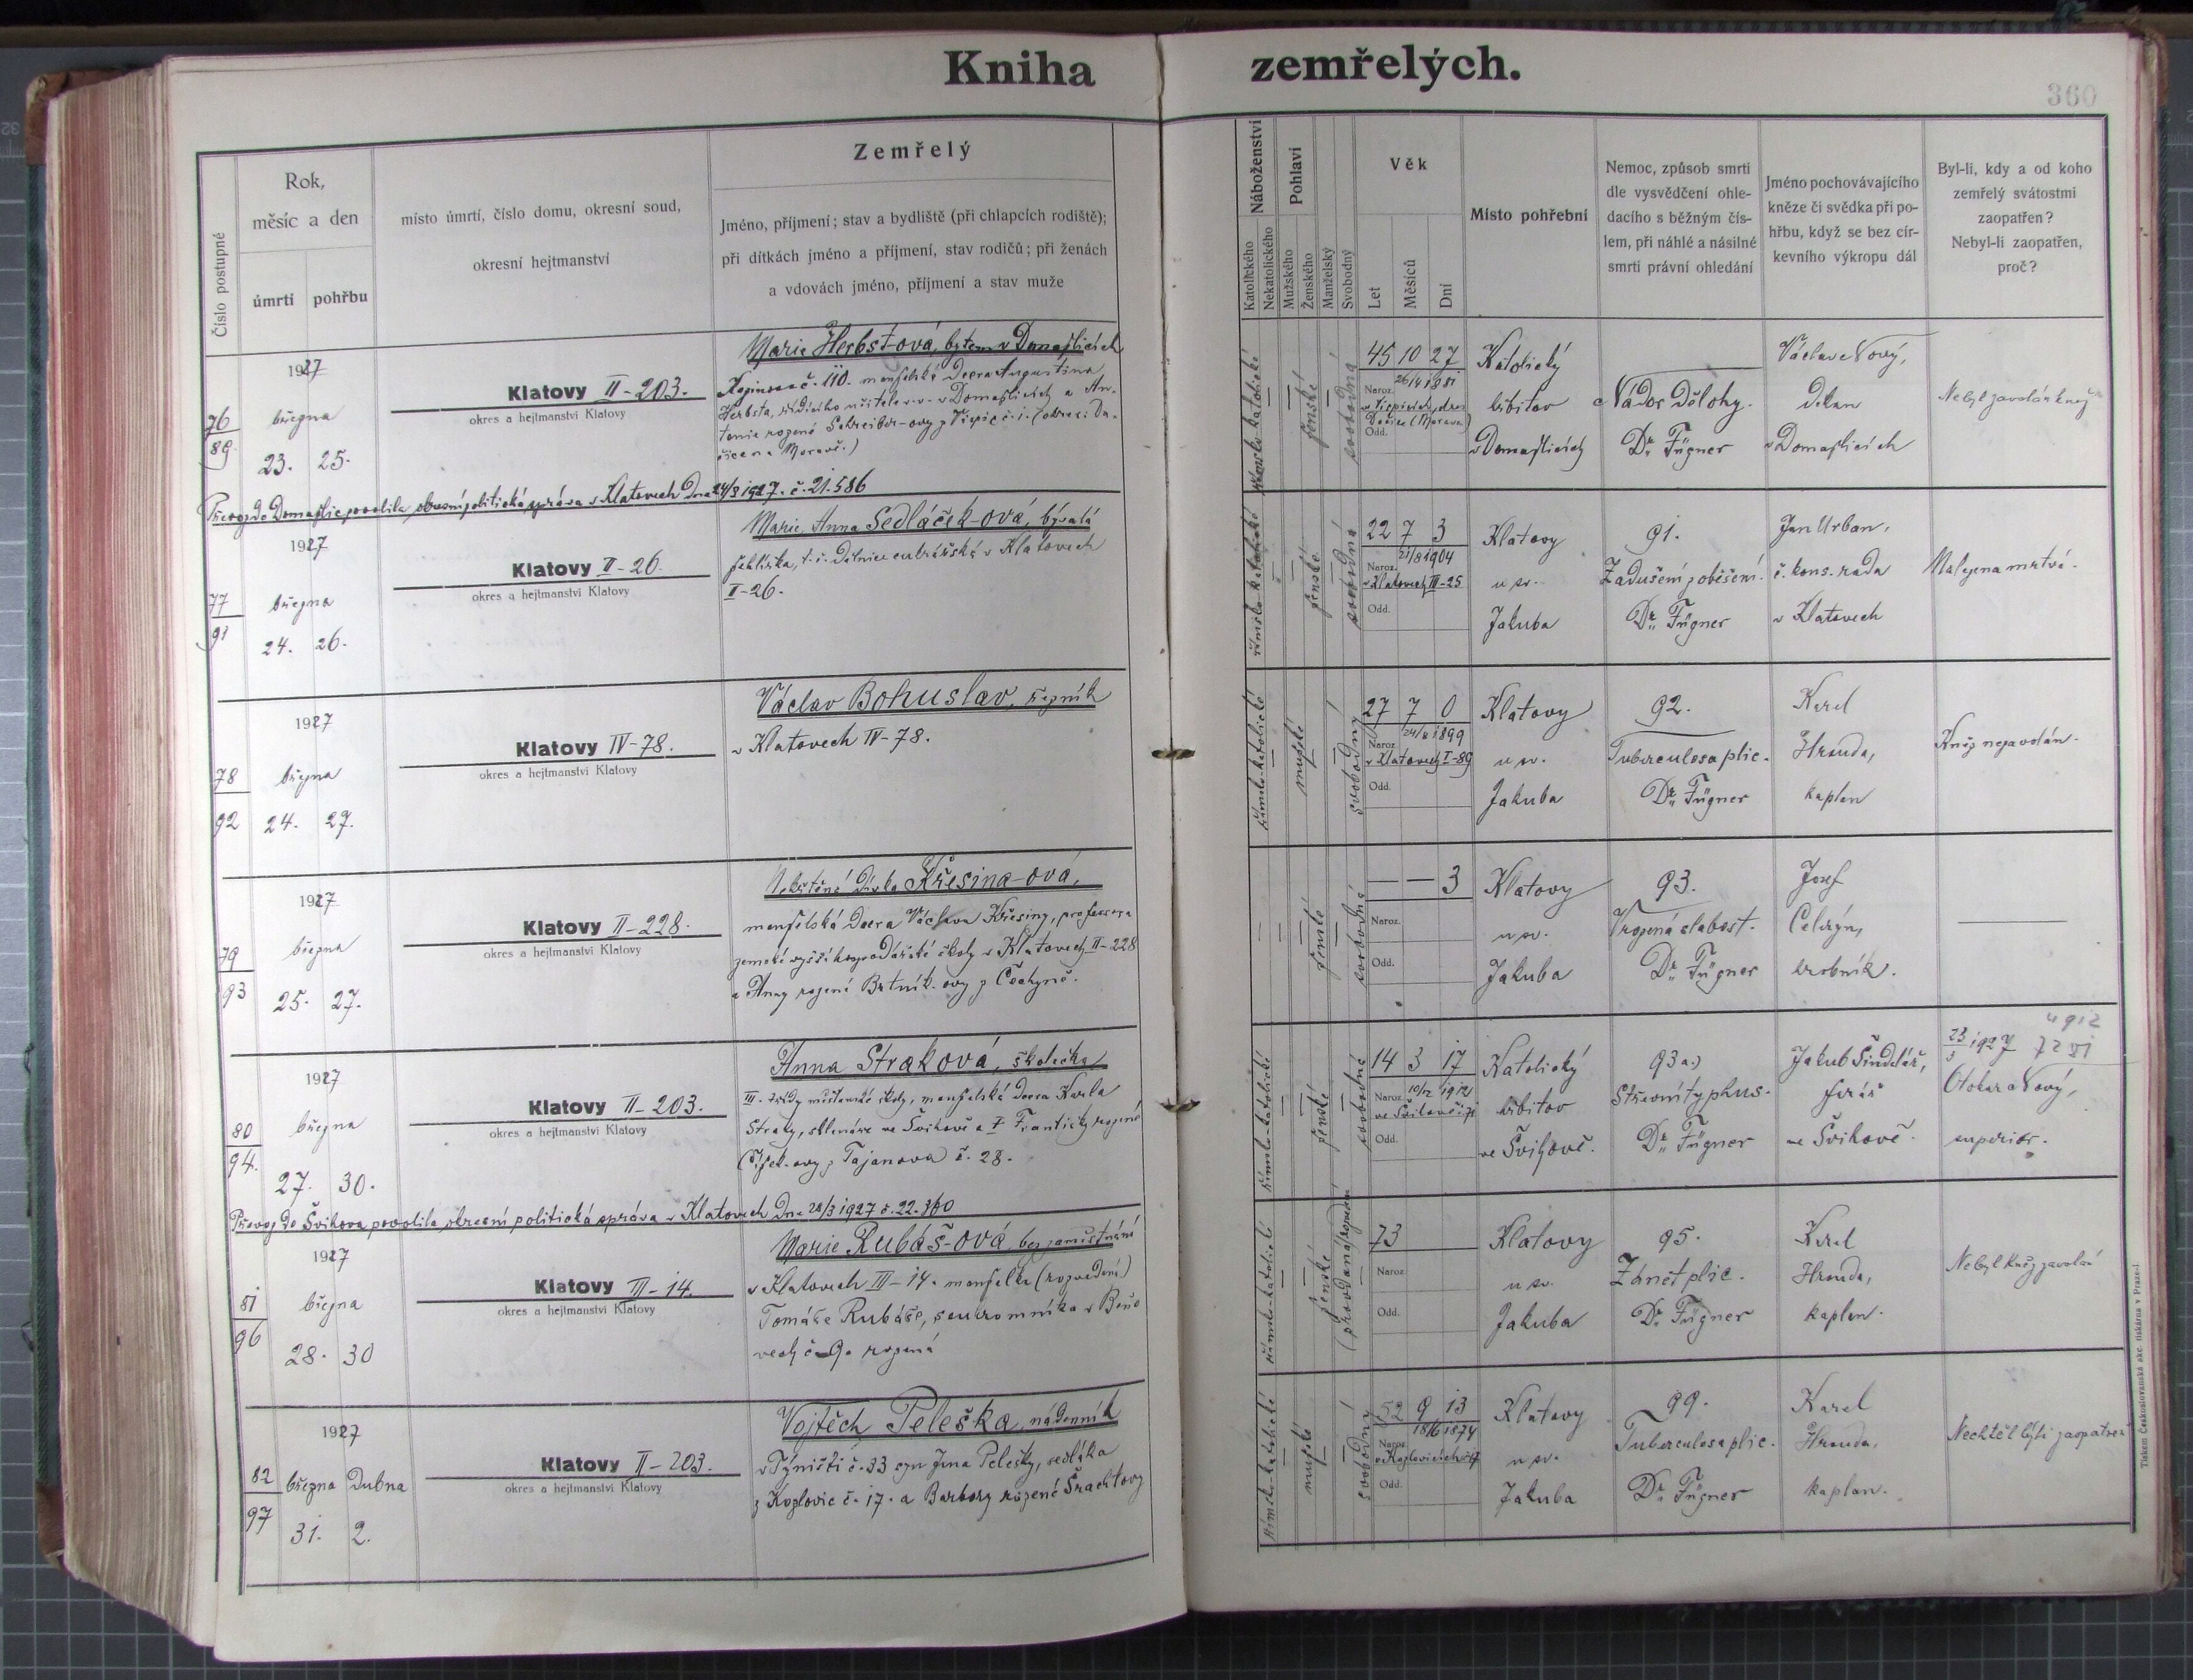 Kniha zemřelých.
360
Číslo postupné
Rok,
měsíc a den
úmrtí
pohřbu
místo úmrtí, číslo domu, okresní soud,
okresní hejtmanství
Zemřelý
Jméno, příjmení; stav a bydliště (při chlapcích rodiště);
při dítkách jméno a příjmení, stav rodičů; při ženách
a vdovách jméno, příjmení a stav muže
Náboženství
Katolického
Nekatolického
Pohlaví
Mužského
Ženského
Manželský
Svobodný
Věk
Let
Měsíců
Dní
Místo pohřební
Nemoc, způsob smrti
dle vysvědčení ohle-
dacího s běžným čís-
lem, při náhlé a násilné
smrti právní ohledání
Jméno pochovávajícího
kněze či svědka při po-
hřbu, když se bez cír-
kevního výkropu dál
Byl-li, kdy a od koho
zemřelý svátostmi
zaopatřen?
Nebyl-li zaopatřen,
proč?
76
89
1927
března
23. 25.
Klatovy II-203.
okres a hejtmanství Klatovy
Marie Herbst-ová, bytem v Domažlicích
č. 110. manželská dcera Augustina
Herbsta, řídícího učitele v. v. v Domažlicích a An-
tonie rozené Schreiber-ovy z č. 1. (okres: Da-
čice na Moravě.)
římsko-katolické
ženské
svobodná
45 10 27
Naroz. 26/4 1881
Dačice (Morava)
Odd.
Katolický
hřbitov
v Domažlicích
Nádor dělohy.
Dr. Fügner
Václav Nový,
děkan
v Domažlicích
Nebyl zavolán kněz
Převoz do Domažlic povolila okresní politická správa v Klatovech dne 24/3 1927. č. 21.586
77
91
1927
března
24. 26.
Klatovy II-26.
okres a hejtmanství Klatovy
Marie Anna Sedláček-ová, bývalá
t. č. dělnice cukrářská v Klatovech
II-26.
římsko-katolické
ženské
svobodná
22 7 3
Naroz. 21/8 1904
v Klatovech III-25
Odd.
Klatovy
u sv.
Jakuba
91.
Zadušení z oběšení.
Dr. Fügner
Jan Urban,
č. kons. rada
v Klatovech
Nalezena mrtvá.
78
92
1927
března
24. 27.
Klatovy IV-78.
okres a hejtmanství Klatovy
Václav Bohuslav, řezník
v Klatovech IV-78.
římsko-katolické
mužské
svobodný
27 7 0
Naroz. 24/8 1899
v Klatovech I-89
Odd.
Klatovy
u sv.
Jakuba
92.
Tuberculosa plic.
Dr. Fügner
Karel
Hrouda,
kaplan
Kněz nezavolán.
79
93
1927
března
25. 27.
Klatovy II-228.
okres a hejtmanství Klatovy
Nekřtěná dívka Křesina-ová,
manželská dcera Václava Křesiny, professora
zemské vyšší hospodářské školy v Klatovech II-228
a Anny rozené Brtník-ovy z Čechyně.
ženské
svobodná
— — 3
Naroz.
Odd.
Klatovy
u sv.
Jakuba
93.
Vrozená slabost.
Dr. Fügner
Josef
Celerýn,
hrobník.
80
94.
1927
března
27. 30.
Klatovy II-203.
okres a hejtmanství Klatovy
Anna Straková, školačka
III. třídy měšťanské školy, manželská dcera Karla
Straky, sklenáře ve Švihově a † Františky rozené
Čížek-ovy z Tajanova č. 28.
římsko-katolické
ženské
svobodná
14 3 17
Naroz. 10/12 1912
Odd.
Katolický
hřbitov
ve Švihově.
93a.)
Střevní typhus.
Dr. Fügner
Jakub Šindelář,
farář
ve Švihově.
23/3 1927
Otokar Nový,
superior.
Převoz do Švihova povolila okresní politická správa v Klatovech dne 28/3 1927 č. 22.360
81
96
1927
března
28. 30
Klatovy III-14.
okres a hejtmanství Klatovy
Marie Rubáš-ová, bez zaměstnání
v Klatovech III-14. manželka (rozvedená)
Tomáše Rubáše, soukromníka v Beňo
vech č. 9. rozená
římsko-katolické
ženské
73
Naroz
Odd.
Klatovy
u sv.
Jakuba
95.
Zánět plic.
Dr. Fügner
Karel
Hrouda,
kaplan.
Nebyl kněz zavolán
82
97
1927
března dubna
31. 2.
Klatovy II-203.
okres a hejtmanství Klatovy
Vojtěch Peleška, nádenník
v Týništi č. 33 syn Jana Pelešky, sedláka
z Kozlovic č. 17. a Barbory rozené Šrachtovy
římsko-katolické
mužské
svobodný
52 9 13
Naroz. 18/6 1874
v Kozlovicích 17
Odd.
Klatovy
u sv.
Jakuba
99.
Tuberculosa plic.
Dr. Fügner
Karel
Hrouda,
kaplan.
Nechtěl býti zaopatřen
Tiskem Českoslovanská akc. tiskárna v Praze-I.